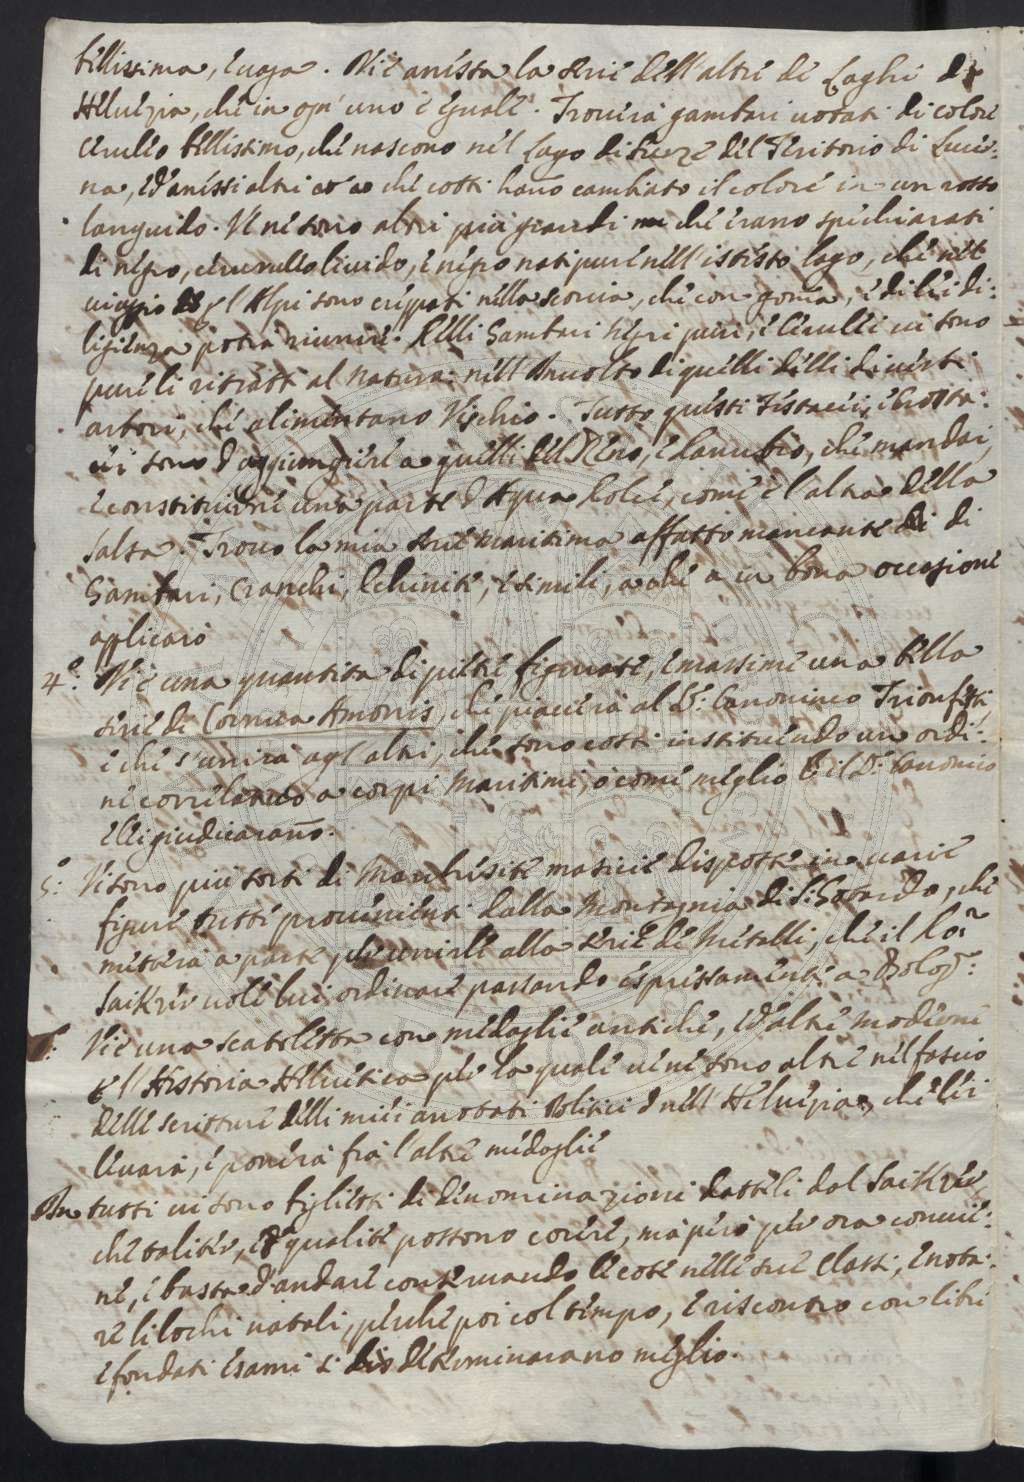 bellissima, e vaga. Vi è anessa la serie dell'altri de Laghi d
Helvezia, che in ogn'uno è eguale. Trovera gambari notati di colore
ceruleo bellissimo, che nascono nel Lago di del Teritorio di Lucer-
na, ed'anessi altri che cotti hano cambiato il colore in un rosso
languido. Ve ne sono altri più grandi che erano
di negro, livido, e negro nati pure nell'istesso lago, che nel
viaggio l'Alpi sono crepati nella scorcia, che con goma, e di lei di-
ligienza potrà riunire. Delli Gambari negri puri, e Cerulei vi sono
pure li ritratti al naturai nell'Involto di quelli delli diversi
arbori, che alimentano Vischio. Tutto questi Testacei, e Crosta-
cei sono d'aggiungiere a quelli del Reno, e Danubio, che mandai,
e constituirne una parte d'Aqua Dolce, come è l'altra della
Salsa. Trovo la mia serie maritima affatto mancante di
Gambari, Cranchi, Echinite, e simili, a che a in bona occasione
applicarò
4º: Vi è una quantita di pietre figurate, e massime una bella
serie di Cornua Amonis, che piacerà al Sʳ: Canonico Trionfetti,
e che s'unirà agl'altri, che sono costì instituendo un ordi-
ne correlativo a corpi Maritimi, o come meglio e il Sʳ: Canonico
e lei giudicarano.
5º: Vi sono più sorti di Marchesite matrice disposte in varie
figure tutti provenienti dalla Montagnia di S: Gotardo, che
metterà a parte per unirle alla serie de Metalli, che il Doʳ
Saikzer vole lui ordinare passando espressamente a Bologª:
6: Vi è una scatoletta con medaglie antiche, ed'altre moderne
p l'Historia Helvetica per la quale ve ne sono altre nel fascio
delle scritture delli miei anotati Politici d nell'Helvezia, che lei
levarà, e ponerà fra l'altre medaglie
In tutti vi sono biglietti di denominazioni dateli dal Saikzer
che taliter, et qualiter possono corere, mà però per ora convie-
ne, e basta d'andare conservando le cose nelle sue Classi, e nota-
re li lochi natali, perche poi col tempo, e riscontro con libri
e fondati esami si determinarano meglio.